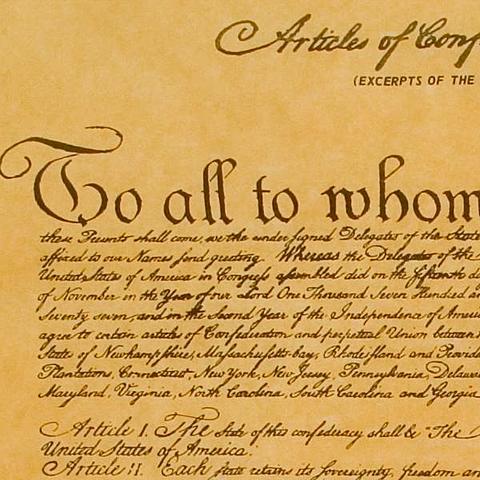 Articles of Conf
(EXCERPTS OF THE
To all to whom
these Presents shall come, we the undersigned Delegates of the State
affixed to our Names send greeting. Whereas the Delegates of the
United States of America in Congress assembled did on the fifteenth d
of November in the Year of our Lord One Thousand Seven Hundred an
Seventy seven, and in the Second Year of the Independence of Americ
agree to certain articles of Confederation and perpetual Union between
State of Newhampshire, Massachusetts-bay, Rhodeisland and Provide
Plantations, Connecticut, New York, New Jersey, Pennsylvania, Delawa
Maryland, Virginia, North Carolina, South Carolina and Georgia
Article I. The State of this confederacy shall be "The
United States of America."
Article II. Each state retains its sovereignty, freedom an